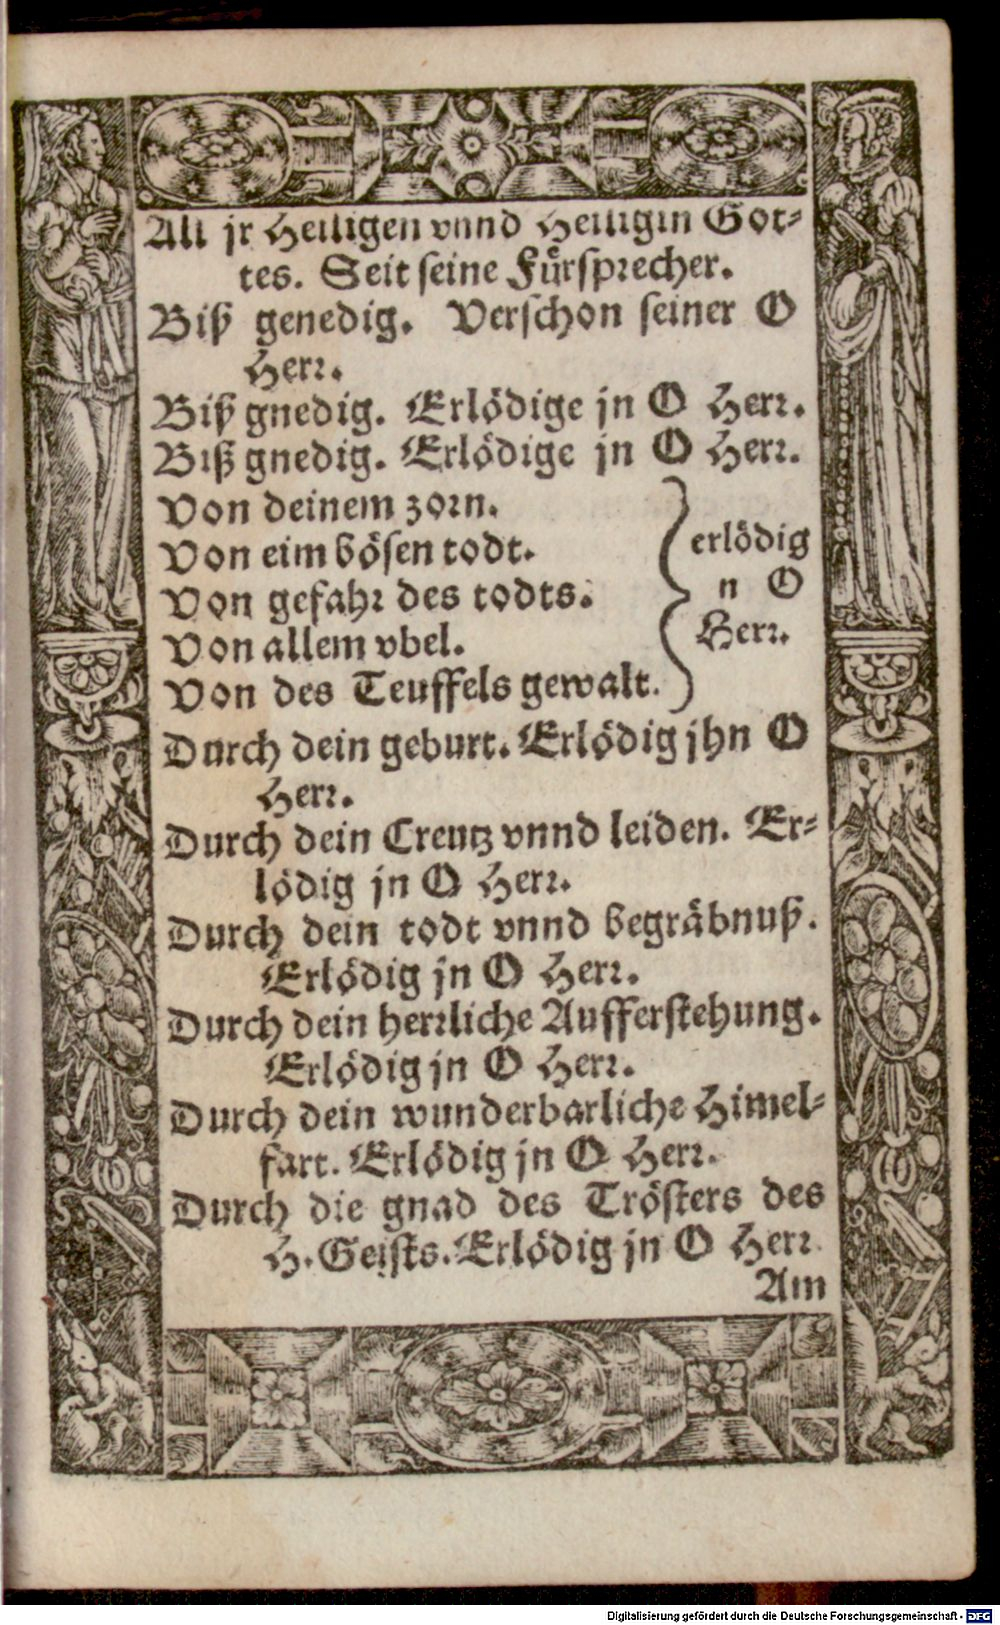 All jr Heiligen vnnd Heiligin Got-
tes. Seit seine Fürsprecher.
Biß genedig. Verschon seiner O
Herr.
Biß gnedig. Erlödige jn O Herr.
Biß gnedig. Erlödige jn O Herr.
Von deinem zorn.
Von eim bösen todt.
Von gefahr des todts.
Von allem vbel.
Von des Teuffels gewalt.
erlödig
n O
Herr.
Durch dein geburt. Erlödig jhn O
Herr.
Durch dein Creutz vnnd leiden. Er-
lödig jn O Herr.
Durch dein todt vnnd begräbnuß.
Erlödig jn O Herr.
Durch dein herrliche Aufferstehung.
Erlödig jn O Herr.
Durch dein wunderbarliche Himel-
fart. Erlödig jn O Herr.
Durch die gnad des Trösters des
H. Geists. Erlödig jn O Herr
Am
Digitalisierung gefördert durch die Deutsche Forschungsgemeinschaft - DFG